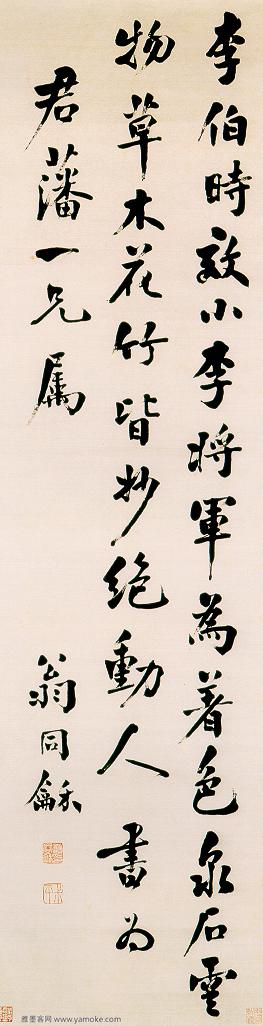 李伯時效小李將軍為著色泉石雲
物草木花竹皆妙絶動人 書為
君藩一兄属
翁同龢
雅墨客网 www.yamoke.com